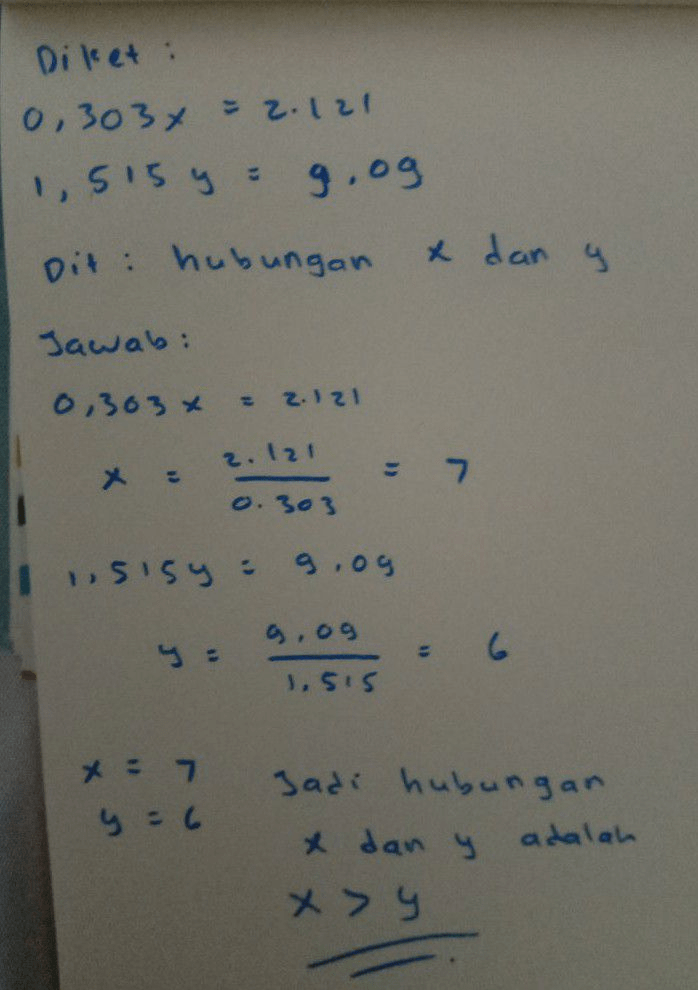 Diket :
0,303x = 2.121
1,515y = 9.09
Dit : hubungan x dan y
Jawab :
0,303x = 2.121
x = 2.121 / 0.303 = 7
1,515y = 9.09
y = 9.09 / 1.515 = 6
x = 7 Jadi hubungan
y = 6 x dan y adalah
x > y